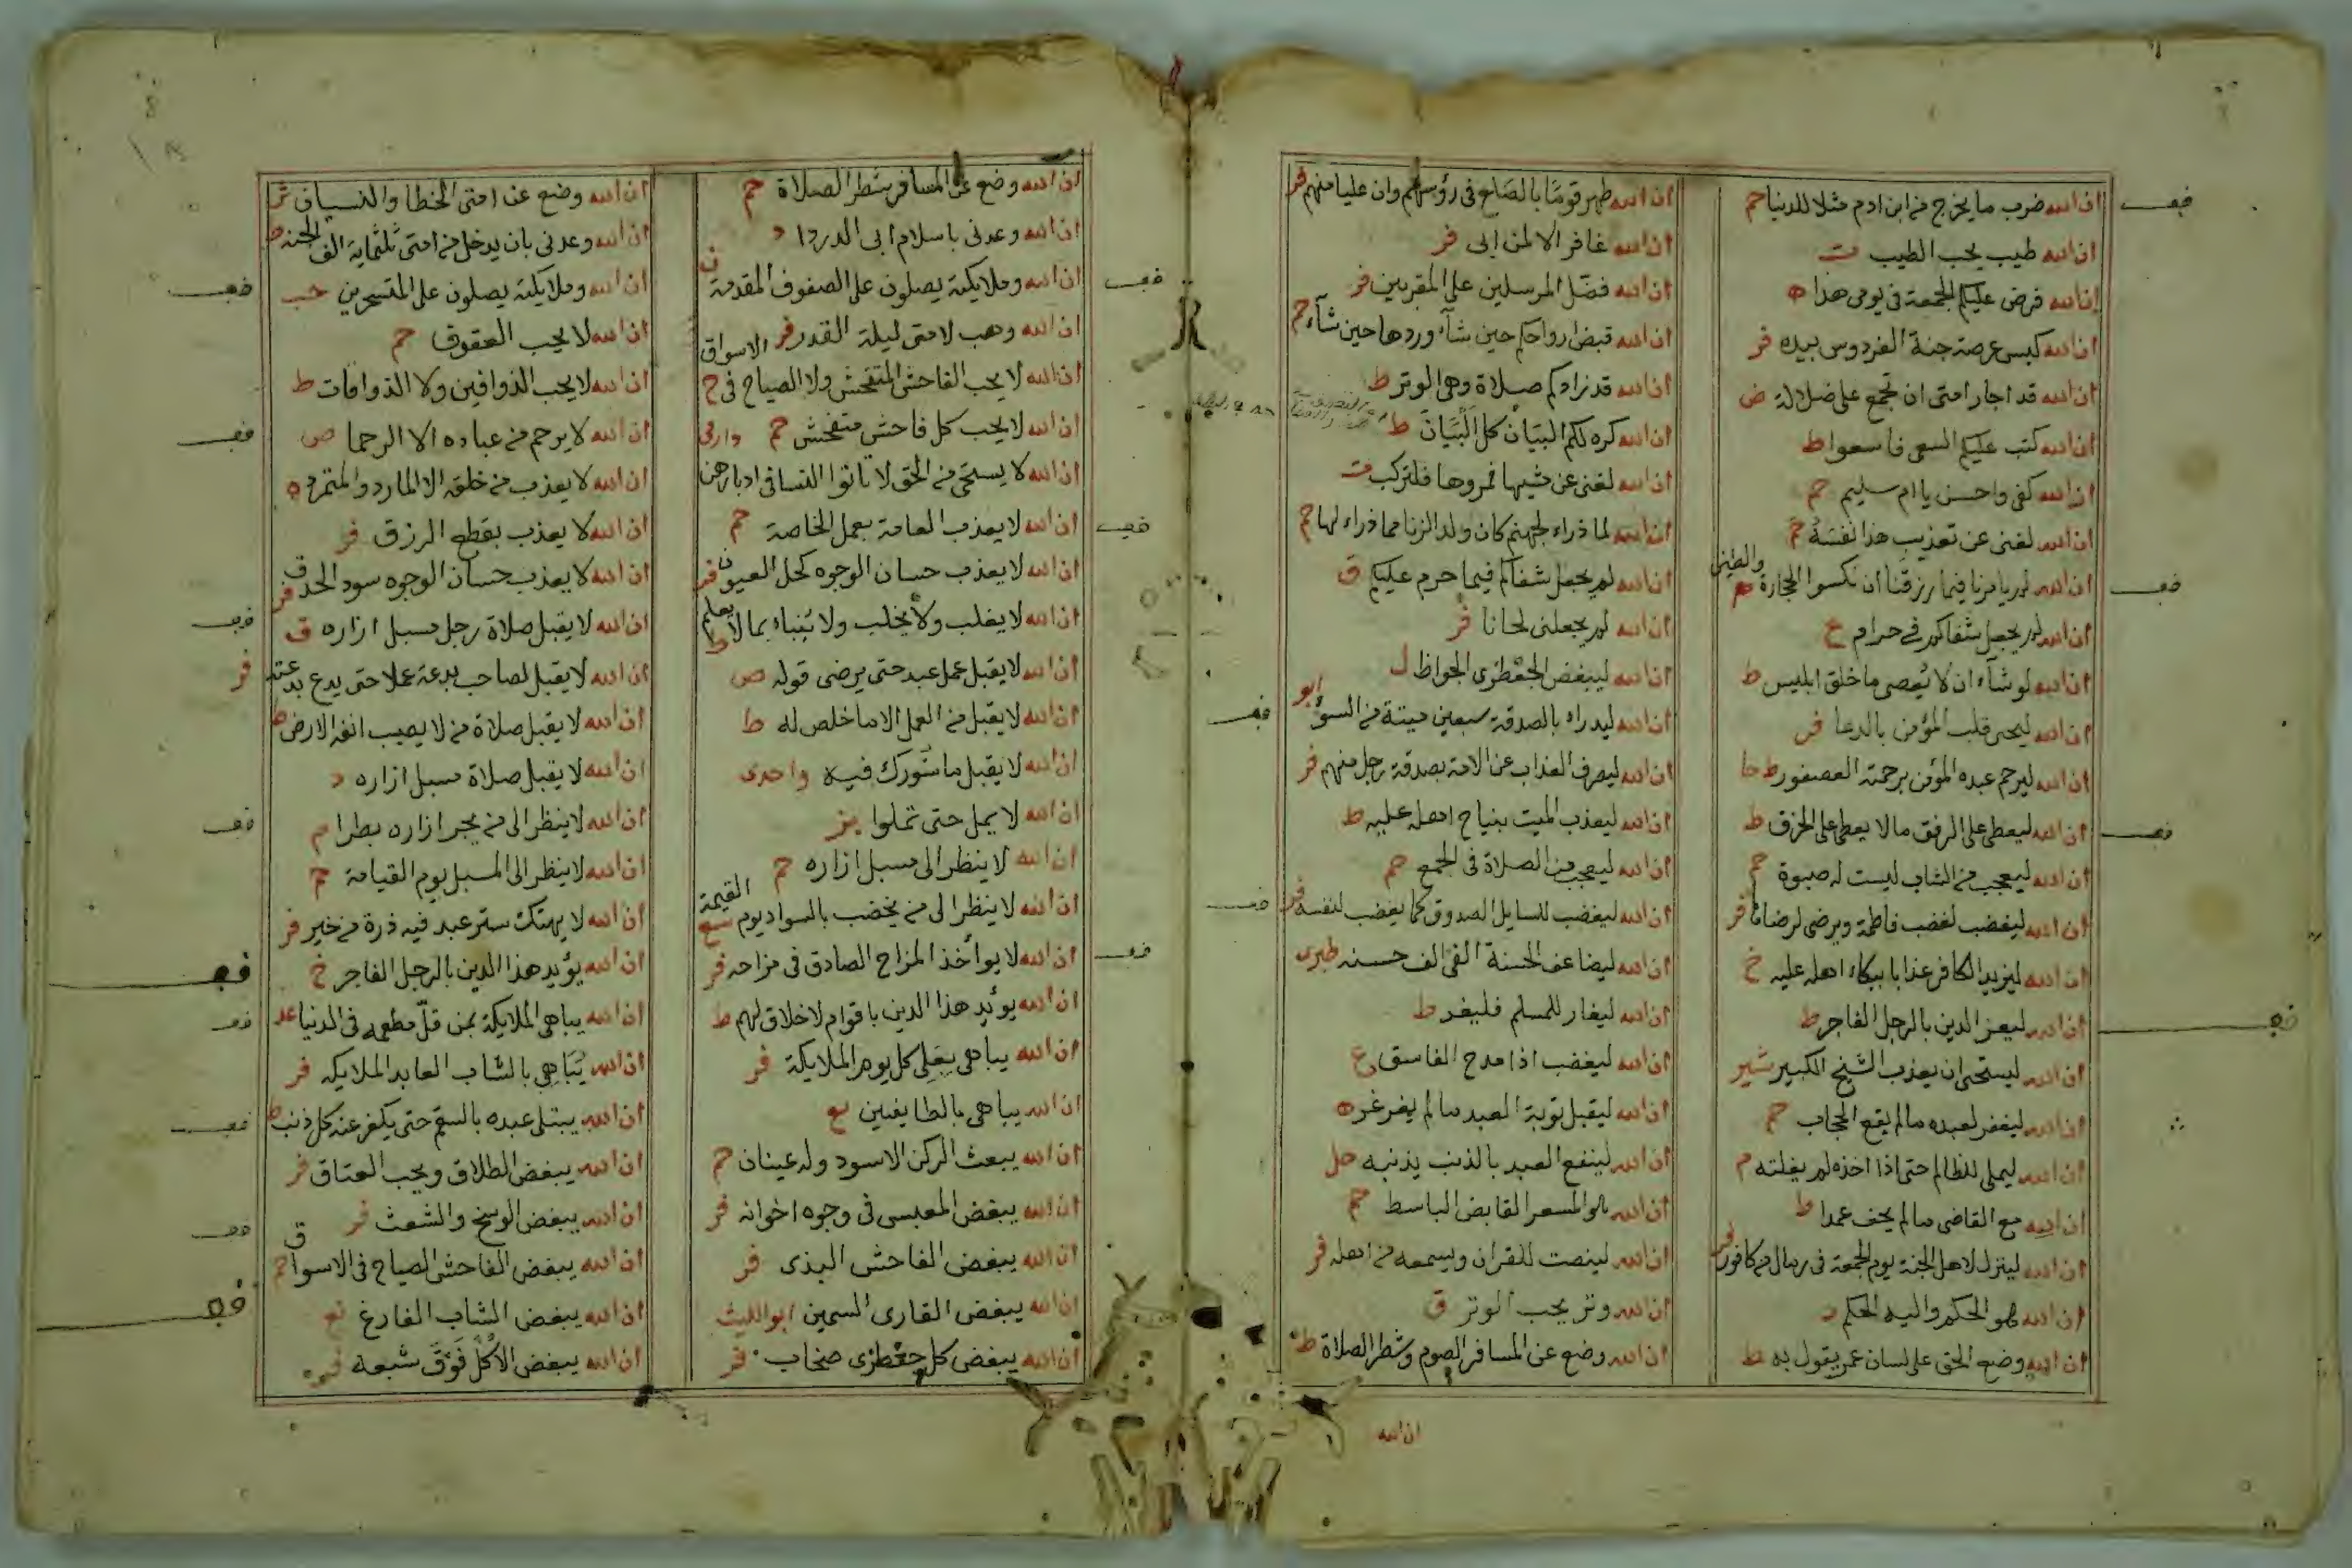 ان الله ضرب ما يخرج من ابن ادم مثلا للدنيا حم
ان الله طيب يحب الطيب ت
ان الله فرض عليكم الجمعة في يومى هذا ه
ان الله كبس عرصة جنة الفردوس بيده فر
ان الله قد اجار امتى ان تجمع على ضلالة ض
ان الله كتب عليكم السعى فاسعوا ط
ان الله كفى واحسن يا ام سليم حم
ان الله لغنى عن تعذيب هذا نفسه حم
ان الله لم يامرنا فيما رزقنا ان نكسوا الحجارة والطين م
ان الله لم يجعل شفاكم في حرام خ
ان الله لو شآء ان لا يُعصى ما خلق ابليس ط
ان الله ليحى قلب المؤمن بالدعا فر
ان الله ليرحم عبده المؤمن برحمته العصفور ط
ان الله ليعطى على الرفق مالا يعطى على الخرق ط
ان الله ليعجب من الشاب ليست له صبوة حم
ان الله ليغضب لغضب فاطمة ويرضى لرضاها فر
ان الله ليزيد الكافر عذابا ببكاء اهله عليه خ
ان الله ليعز الدين بالرجل الفاجر ط
ان الله ليستحى ان يعذب الشيخ الكبير شير
ان الله ليغفر لعبده مالم يقع الحجاب حم
ان الله ليملى للظالم حتى اذا اخذه لم يفلته م
ان الله مع القاضى مالم يحف عمدا ط
ان الله لينزل لاهل الجنة يوم الجمعة في رمال من كافور فر
ان الله هو الحكم واليه الحكم د
ان الله وضع الحق على لسان عمر يقول به ط
ان الله طهر قومًا بالصلع في رؤسهم وان عليا منهم فر
ان الله غافر الا لمن ابى فر
ان الله فضّل المرسلين على المقربين فر
ان الله قبض ارواحكم حين شآء وردها حين شآء حم
ان الله قد زادكم صلاة وهى الوتر ط
ان الله كره لكم البيان كل البيان ط
ان الله لغنى عن مشيها فمروها فلتركب ت
ان الله لما ذراء لجهنم كان ولد الزنا مما ذراء لها حم
ان الله لم يجعل شفاكم فيما حرم عليكم ق
ان الله لم يجعلنى لحانا فر
ان الله ليبغض الجعظرى الجواظ ل
ان الله ليدراء بالصدقة سبعين ميتة من السؤ ابو
ان الله ليصرف العذاب عن الامة بصدقة رجل منهم فر
ان الله ليعذب الميت بنياح اهله عليه ط
ان الله ليعجب من الصلاة في الجمع حم
ان الله ليغضب للسايل الصدوق كما يغضب لنفسه فر
ان الله ليضاعف الحسنة الفى الف حسنه طبرى
ان الله ليغار للمسلم فليغر ط
ان الله ليغضب اذا مدح الفاسق ع
ان الله ليقبل توبة العبد مالم يغرغر ه
ان الله لينفع العبد بالذنب يذنبه حل
ان الله هو المسعر القابض الباسط حم
ان الله لينصت للقران ويسمعه من اهله فر
ان الله وتر يحب الوتر ق
ان الله وضع عن المسافر الصوم وشطر الصلاة ط
ان الله
ان الله وضع عن المسافر شطر الصلاة حم
ان الله وعدنى باسلام ابى الدردا د
ان الله وملايكته يصلون على الصفوف المقدمة ن
ان الله وهب لامتى ليلة القدر فر
ان الله لا يحب الفاحش المتفحش ولا الصياح في الاسواق خ
ان الله لا يحب كل فاحش متفحش حم
ان الله لا يستحى من الحق لا تاتوا النسا في ادبارهن وارمى
ان الله لا يعذب العامة بعمل الخاصة حم
ان الله لا يعذب حسان الوجوه كحل العيون فر
ان الله لا يغلب ولا يخلب ولا ينباء بما لا يعلم ط
ان الله لا يقبل عمل عبد حتى يرضى قوله ص
ان الله لا يقبل من العمل الا ما خلص له ط
ان الله لا يقبل ما شورك فيه واحدى
ان الله لا يمل حتى تملوا بز
ان الله لا ينظر الى مسبل ازاره حم
ان الله لا ينظر الى من يخضب بالسواد يوم القيمة سع
ان الله لا يوآخذ المزاح الصادق في مزاحه فر
ان الله يوئد هذا الدين باقوام لاخلاق لهم ط
ان الله يباهى بعلى كل يوم الملايكة فر
ان الله يباهى بالطايفين بع
ان الله يبعث الركن الاسود وله عينان حم
ان الله يبغض المعبس في وجوه اخوانه فر
ان الله يبغض الفاحش البذى فر
ان الله يبغض القارى السمين ابو الليث
ان الله يبغض كل جعظرى صخاب فر
ان الله وضع عن امتى الخطا والنسيان
ان الله وعدنى بان يدخل من امتى ثلثماية الف الجنه ط
ان الله وملايكته يصلون على المتسحرين حب
ان الله لا يحب العقوق حم
ان الله لا يحب الذواقين ولا الذواقات ط
ان الله لا يرحم من عباده الا الرحما ص
ان الله لا يعذب من خلقه الا المارد والمتمرد ه
ان الله لا يعذب بقطع الرزق فر
ان الله لا يعذب حسان الوجوه سود الحدق فر
ان الله لا يقبل صلاة رجل مسبل ازاره ق
ان الله لا يقبل لصاحب بدعة عملا حتى يدع بدعته فر
ان الله لا يقبل صلاة من لا يصيب انفه الارض ط
ان الله لا يقبل صلاة مسبل ازاره د
ان الله لا ينظر الى من يجر ازاره بطرا م
ان الله لا ينظر الى المسبل يوم القيامة حم
ان الله لا يهتك ستر عبد فيه ذرة من خير فر
ان الله يؤيد هذا الدين بالرجل الفاجر خ
ان الله يباهى الملايكة بمن قلّ مطعمه في الدنيا عد
ان الله يُبَاهِى بالشاب العابد الملايكه فر
ان الله يبتلى عبده بالسقم حتى يكفر عنه كل ذنب ط
ان الله يبغض الطلاق ويحب العتاق فر
ان الله يبغض الوسخ والشعث فر
ان الله يبغض الفاحش الصياح في الاسواق
ان الله يبغض الشاب الفارغ نع
ان الله يبغض الاكل فوق شبعه فر